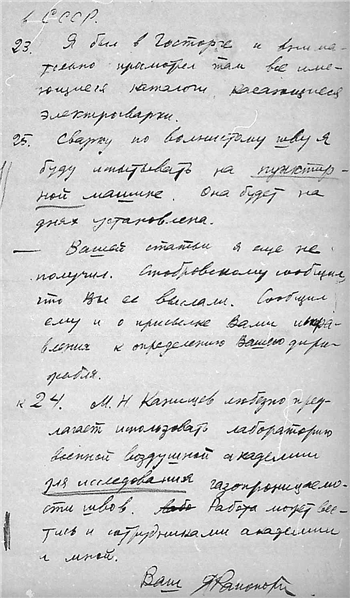 в СССР.
23. Я был в Госторге и внима-
тельно просмотрел там все име-
ющиеся каталоги, касающиеся
электросварки.
25. Сварку по волнистому шву я
буду испытывать на пунктир-
ной машине. Она будет на
днях установлена.
— Вашей статьи я еще не
получил. Стобровскому сообщил,
что Вы ее выслали. Сообщил
ему и о присылке Вами испра-
вления к определению Вашего дири-
жабля.
к 24. М. Н. Канищев любезно пред-
лагает использовать лабораторию
военной воздушной академии
для исследования газопроницаемо-
сти швов. Работа может вес-
тись и сотрудниками академии
и мной.
Ваш Я Рапопорт